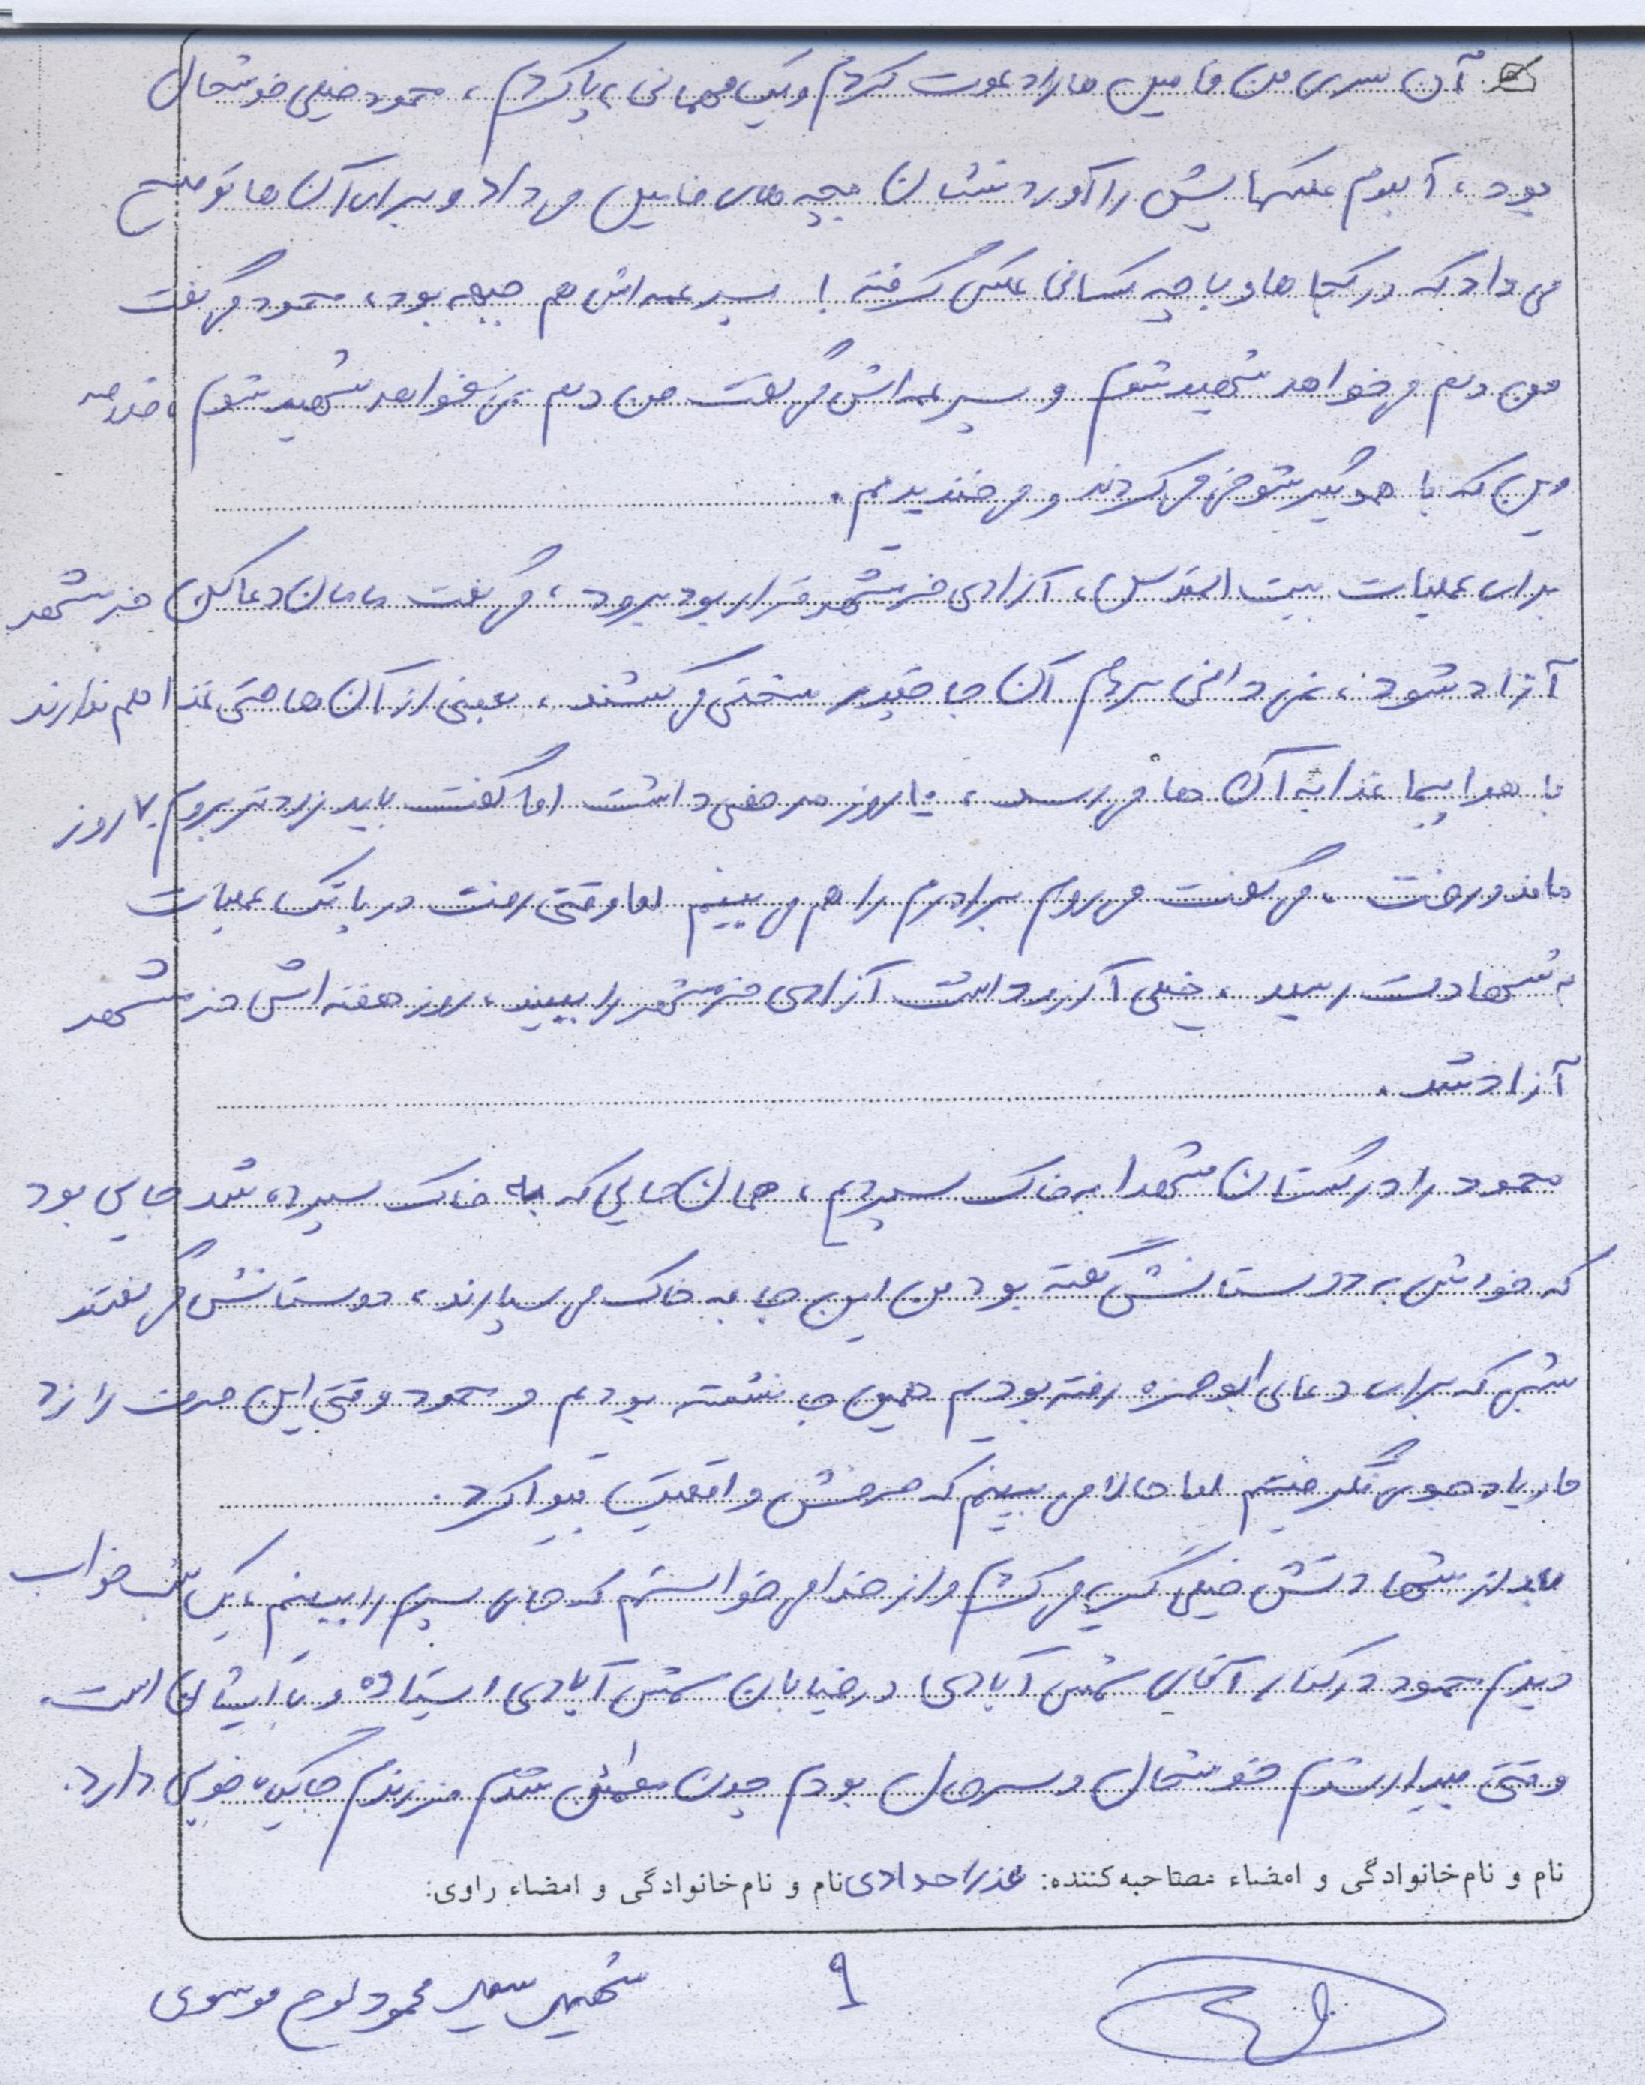 آن سری من فامیل ها را دعوت کردم و یک مهمانی بپا کردم ، محمود خیلی خوشحال
بود ، آلبوم عکسهایش را آورد نشان بچه های فامیل می داد و برای آن ها توضیح
می داد که در کجاها و با چه کسانی عکس گرفته ! پسر عمه اش هم جبهه بود ، محمود می گفت
من دلم می خواهد شهید شوم و پسر عمه اش می گفت من دلم نمی خواهد شهید شوم ، خلاصه
این که با همدیگر شوخی می کردند و می خندیدیم .
برای عملیات بیت المقدس ، آزادی خرمشهر قرار بود برود ، می گفت مامان دعا کن خرمشهر
آزاد شود ، نمی دانی مردم آن جا چقدر سختی می کشند ، بعضی از آن ها حتی غذا هم ندارند
با هواپیما غذا به آن ها می رسد ، ۱۰ روز مرخصی داشت اما گفت باید زودتر بروم ۷ روز
ماند و رفت ، می گفت می روم برادرم را هم می بینم اما وقتی رفت در پاتک عملیات
به شهادت رسید ، خیلی آرزو داشت آزادی خرمشهر را ببیند ، روز هفته اش خرمشهر
آزاد شد .
محمود را در گلستان شهدا به خاک سپردیم ، همان جایی که به خاک سپرده شد جایی بود
که خودش به دوستانش گفته بود من این جا به خاک می سپارند ، دوستانش می گفتند
شبی که برای دعای ابوحمزه رفته بودیم همین جا نشسته بودیم و محمود وقتی این حرف را زد
ما زیاد جدی نگرفتیم اما حالا می بینم که حرفش واقعیت پیدا کرد .
بعد از شهادتش خیلی گریه می کردم و از خدا می خواستم که جای پسرم را ببینم ، یک شب خواب
دیدم محمود در کنار آقای شمس آبادی در خیابان شمس آبادی ایستاده و با ایشان است .
وقتی بیدار شدم خوشحال و سرحال بودم چون مطمئن شدم فرزندم جایگاه خوبی دارد .
نام و نام خانوادگی و امضاء مصاحبه کننده: عذرا حدادی نام و نام خانوادگی و امضاء راوی:
۹
شهید سید محمود لوح موسوی